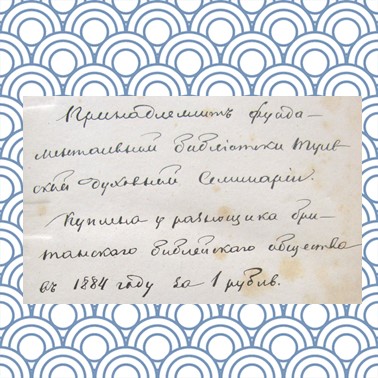 Принадлежитъ фунда-
ментальной библіотеки Тул-
ской Духовной Семинаріи.
Куплена у разнощика бри-
танскаго библейскаго общества
въ 1884 году за 1 рубль.